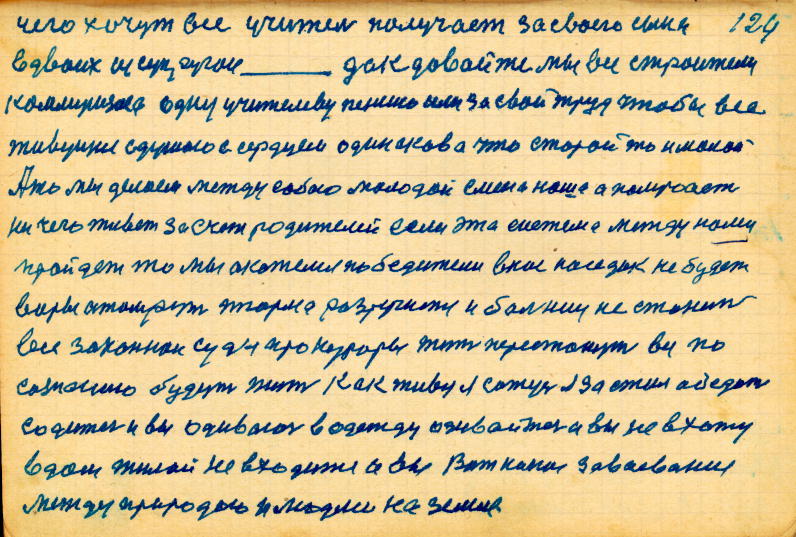 чего хочут все учител получает засвоего сына 124
вдвоих и супругои ______ дак довайте мы все строители
коммунизма одну учителеву пенсию или засвой труд чтобы все
живущие одушою сердцем одинакова что старой то и малой
Ато мы делаем между собою молодой смена наша а получает
ни чего живет засчет родителей если эта система между нами
пройдет то мы окажемся победители внас наседок не будет
воры атомрут тюрма разручится и болниц не станит
все законнои суд и прокуроры жит перестанут вы по
сознанию будут жит Как живу я сажус я за стол обедат
содитес и вы одиваюс в одежду одивайтес и вы не вхожу
вдом жилой не входите и вы Воткакие завоевания
между природою и людми на земле